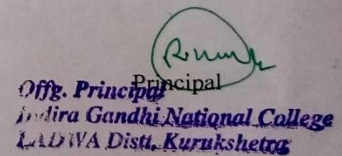 Principal
Offg. Principal
Indira Gandhi National College
LADWA Distt. Kurukshetra